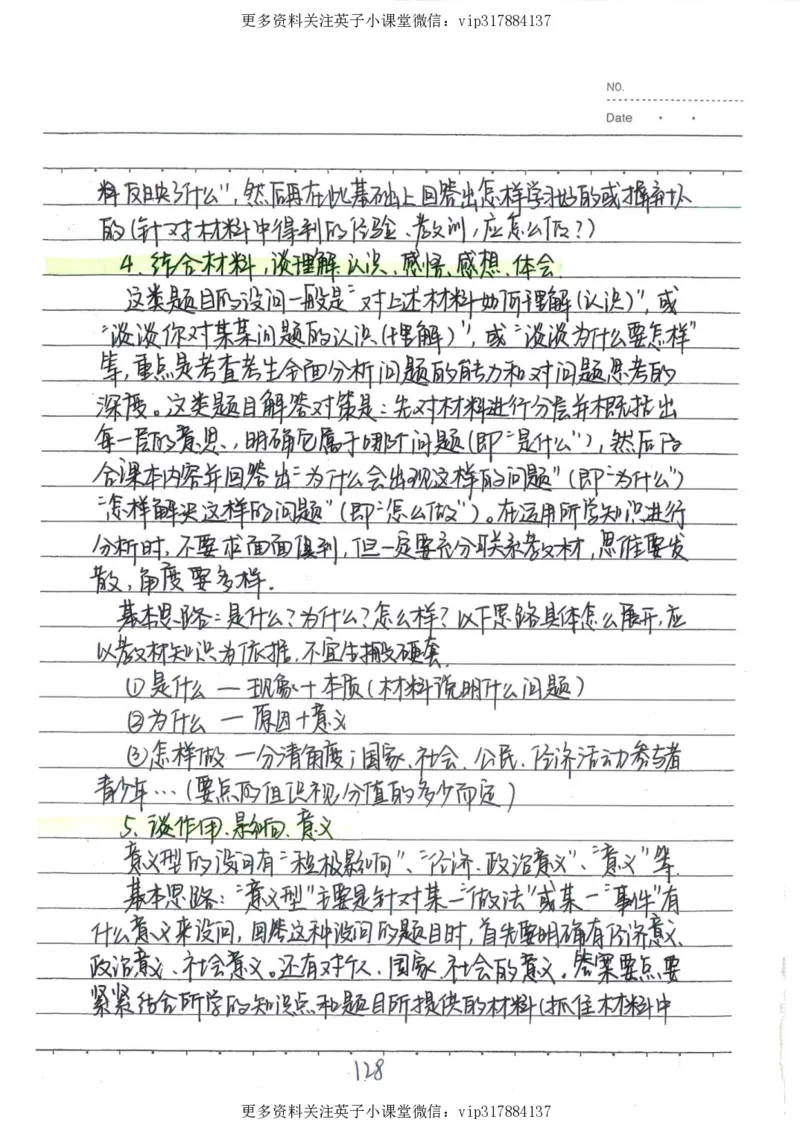 更多资料关注英子小课堂微信：vip317884137
NO.
Date
料反映了什么"，然后再在此基础上回答出怎样学习好的或摒弃坏
的(针对材料中得到的经验、教训，应怎么做？)
4、结合材料，谈理解、认识、感悟、感想、体会
这类题目的设问一般是"对上述材料如何理解(认识)"，或
"谈谈你对某某问题的认识(理解)"，或"谈谈为什么要怎样"
等，重点是考查考生全面分析问题的能力和对问题思考的
深度。这类题目解答对策是：先对材料进行分层并概括出
每一层的意思，明确它属于哪个问题(即"是什么")，然后结
合课本内容并回答出"为什么会出现这样的问题"(即"为什么")
"怎样解决这样的问题"(即"怎么做")。在运用所学知识进行
分析时，不要求面面俱到，但一定要充分联系教材，思维要发
散，角度要多样.
基本思路：是什么？为什么？怎么样？以下思路具体怎么展开，应
以教材知识为依据，不宜生搬硬套.
①是什么 — 现象+本质(材料说明什么问题)
②为什么 — 原因+意义
③怎样做 — 分清角度；国家、社会、公民、经济活动参与者
青少年…(要点的但识视分值的多少而定)
5、谈作用、影响、意义
意义型的设问有"积极影响"、"经济、政治意义"、"意义"等.
基本思路："意义型"主要是针对某一"做法"或某一"事件"有
什么意义来设问，回答这种设问的题目时，首先要明确有经济意义、
政治意义、社会意义。还有对个人、国家、社会的意义。答案要点要
紧紧结合所学的知识点和题目所提供的材料(抓住材料中
128
更多资料关注英子小课堂微信：vip317884137